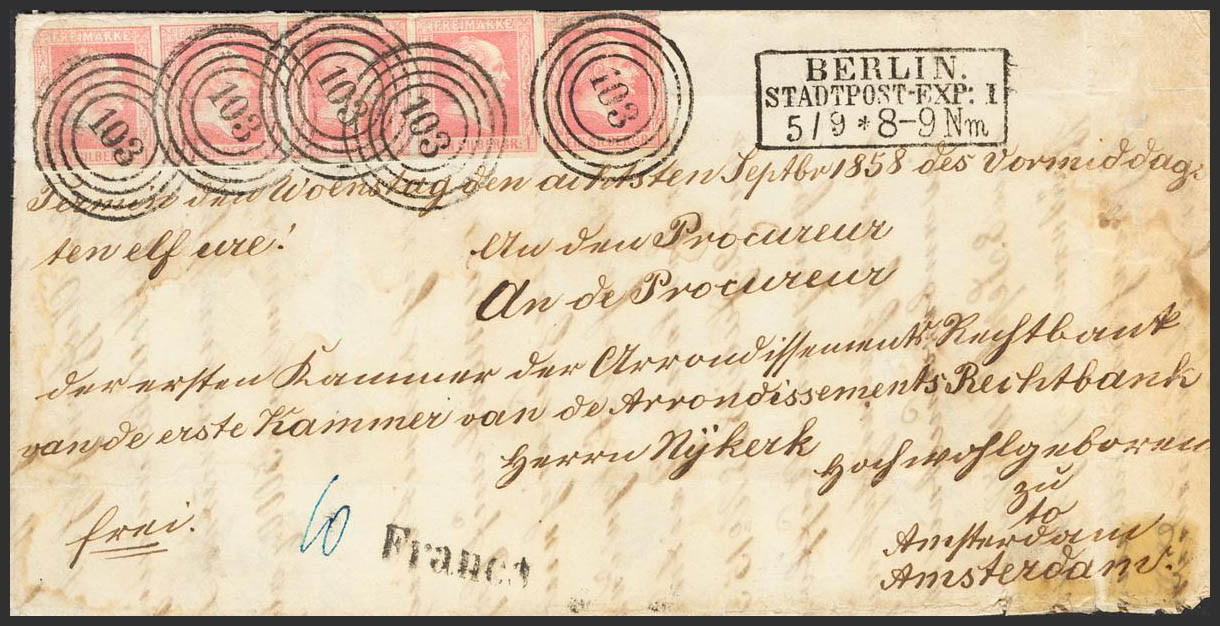 FREIMARKE FREIMARKE FREIMARKE FREIMARKE FREIMARKE
103 103 103 103 103
SILBERGR: 1 SILBERGR: 1
BERLIN.
STADTPOST-EXP: I
5/9 * 8-9 Nm
Termin den Woenstag den achtsten Septbr 1858 des Vormiddags
ten elf ure!
An den Procureur
An de Procureur
der ersten Kammer der Arrondissements Rechtbank
van de erste Kammer van de Arrondissements Rechtbank
Herrn Nÿkerk Hochwohlgeboren
zu
to
frei.
60
Franco
Amsterdam
Amsterdam.